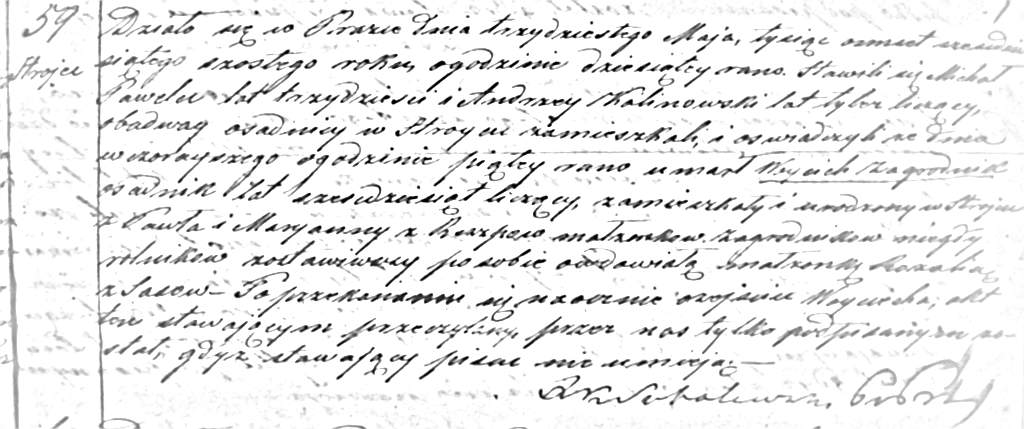 59
Strojce
Działo się w Prazce dnia trzydziestego Maja, tysiąc osmset sześdzie
siątego szóstego roku, ogodzinie dziesiątey rano. Stawili się Michał
Pawelec lat trzydzieści i Andrzey Kalinowski lat tyleż liczący,
obadway osadnicy w Stroycu zamieszkali, i oswiadczyli że dnia
wczorayszego ogodzinie piątey rano umarł Woyciech Zagrodnik
osadnik lat sześdziesiąt liczący, zamieszkały i urodzony w Stroycu
z Pawła i Maryanny z małżonków Zagrodników niegdy
rolników zostawiwszy po sobie owdowiałą małżonkę Rozalią
z Sasów – Po przekonaniu się naocznie o zejściu Woyciecha, akt
ten stawającym przeczytany, przez nas tylko podpisanym zo-
stał, gdyż stawający pisać nie umieją –